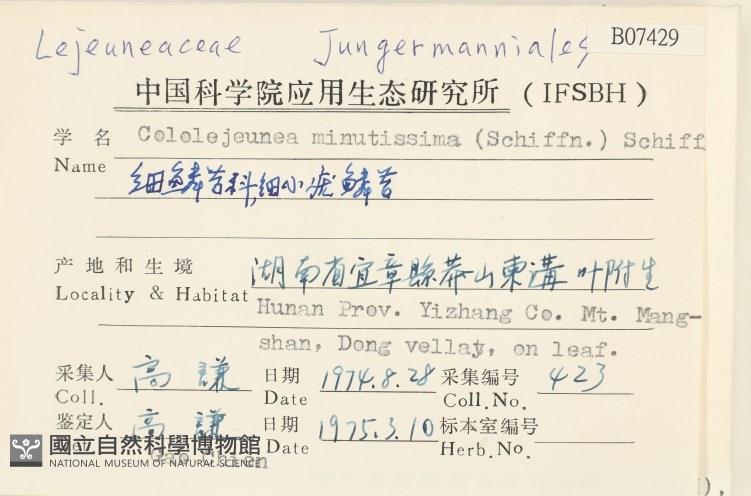 Lejeuneaceae Jungermanniales
B07429
中国科学院应用生态研究所 (IFSBH)
学名 Cololejeunea minutissima (Schiffn.) Schiff
Name 细鳞苔科,细小疣鳞苔
产地和生境 湖南省宜章縣莽山東溝 叶附生
Locality & Habitat Hunan Prov. Yizhang Co. Mt. Mang-
shan, Dong vellay, on leaf.
采集人 高謙 日期 1974.8.28 采集编号 423
Coll. Date Coll.No.
鉴定人 高謙 日期 1975.3.10 标本室编号
Date Herb.No.
國立自然科學博物館
NATIONAL MUSEUM OF NATURAL SCIENCE
),